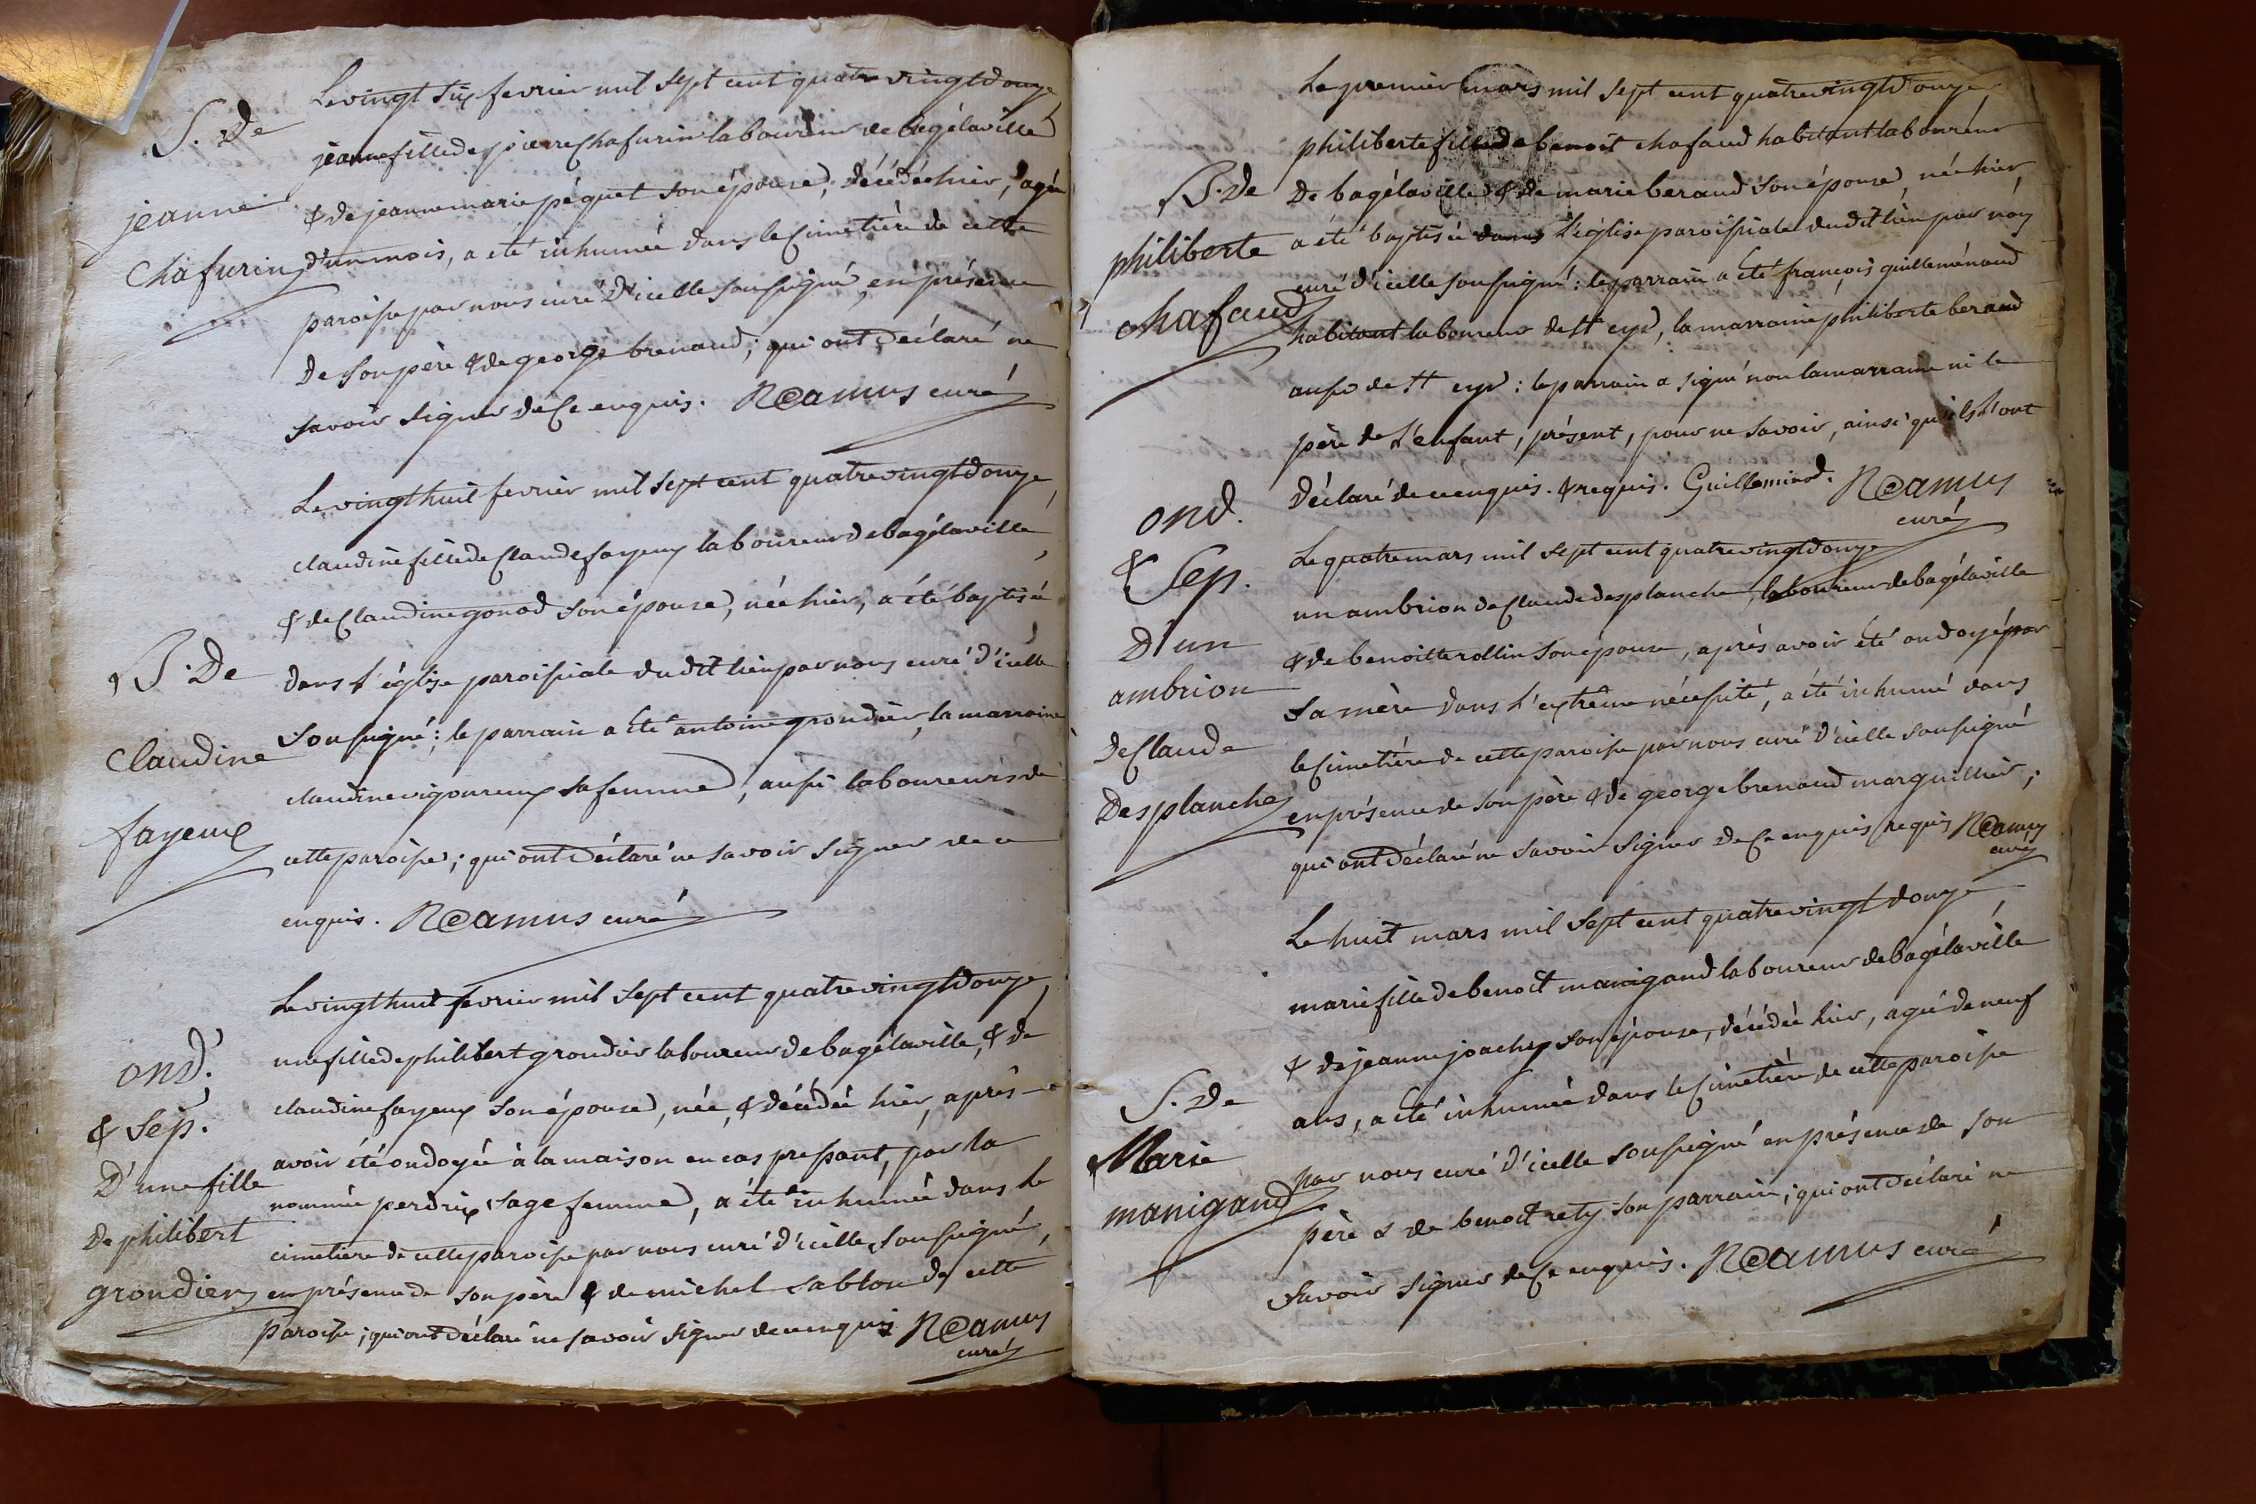 S. De
jeanne
Chafurin
Le vingt six fevrier mil sept cent quatre vingt douze
jeanne fille de pierre Chafurin laboureur de bagélaville
& de jeanne marie péquet son épouse, décédée hier, agée
d'un mois, a eté inhumée dans le Cimetière de cette
paroisse par nous curé d'icelle soussigné, en présence
De son père & de george brenaud; qui ont déclaré ne
savoir signer de Ce enquis. Ramus curé
B. De
Claudine
fayeux
Le vingt huit fevrier mil sept cent quatre vingt douze
claudine fille de Claude fayeux laboureur de bagélaville
& de Claudine gonod son épouse, née hier, a été baptisée
dans l'église paroissiale du dit lieu par nous curé d'icelle
soussigné; le parrain a été antoine grondier, la marraine
claudine vigoureux sa femme, aussi laboureurs de
cette paroisse; qui ont déclaré ne savoir signer de ce
enquis. Ramus curé
ond.
& Sep.
D'une fille
De philibert
grondier
Le vingt huit fevrier mil sept cent quatre vingt douze,
une fille de philibert grondier laboureur de bagélaville, & de
claudine fayeux son épouse, née, & décédée hier, après
avoir été ondoyée à la maison en cas pressant, par la
nommée perdrix sage femme, a été inhumée dans le
cimetière de cette paroisse par nous curé d'icelle soussigné,
en présence de son père & de michel sablon de cette
paroisse; qui ont déclaré ne savoir signer de ce enquis Ramus
curé
B. De
philiberte
chafaud
Le premier mars mil sept cent quatre vingt douze
philiberte fille de benoit chafaud habitant laboureur
De bagélaville & de marie beraud son épouse, née hier,
a été baptisée dans l'église paroissiale du dit lieu par nous
curé d'icelle soussigné: le parrain a eté françois guilleménaud
habitant laboureur de St cyr, la marraine philiberte beraud
aussi de St cyr: le parrain a signé non la marraine ni le
père de l'enfant, présent, pour ne savoir, ainsi qu'ils l'ont
déclaré de ce enquis. & requis. Guilleminod. Ramus
curé
ond.
& Sep.
D'un
ambrion
De Claude
Desplanche
Le quatre mars mil sept cent quatre vingt douze
un ambrion de Claude desplanche laboureur de bagélaville
& de benoitte rollin son épouse, après avoir été ondoyé par
sa mère dans l'extrême nécessité, a été inhumé dans
le Cimetière de cette paroisse par nous curé d'icelle soussigné
en présence de son père & de george brenaud marguillier;
qui ont déclaré ne savoir signer de Ce enquis requis Ramus
curé
S. De
Marie
manigand
Le huit mars mil sept cent quatre vingt douze,
marie fille de benoit manigand laboureur de bagélaville
& de jeanne joachy son épouse, décédée hier, agée de neuf
ans, a été inhumée dans le Cimetière de cette paroisse
par nous curé d'icelle soussigné en présence de son
père & de benoit rety son parrain; qui ont déclaré ne
savoir signer de Ce enquis. Ramus curé